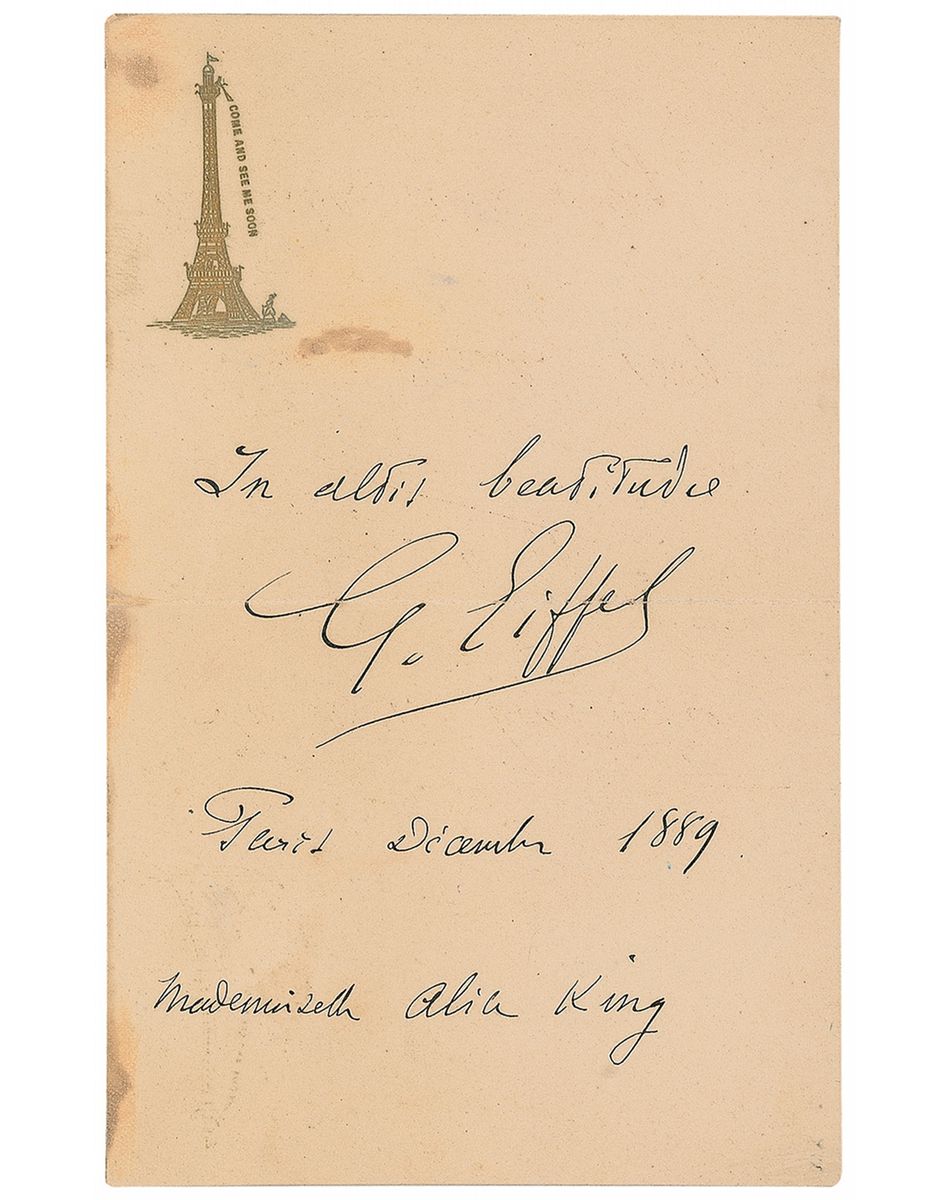 COME AND SEE ME SOON
In altis beatitudie
G. Eiffel
Paris Décembre 1889
Mademoiselle Alice King